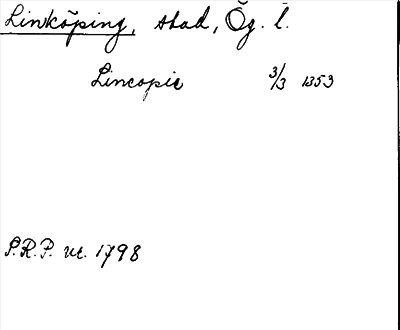 Linköping, stad, Ög. l.
Lincopie 3/3 1353
S.R.P. nr. 1798